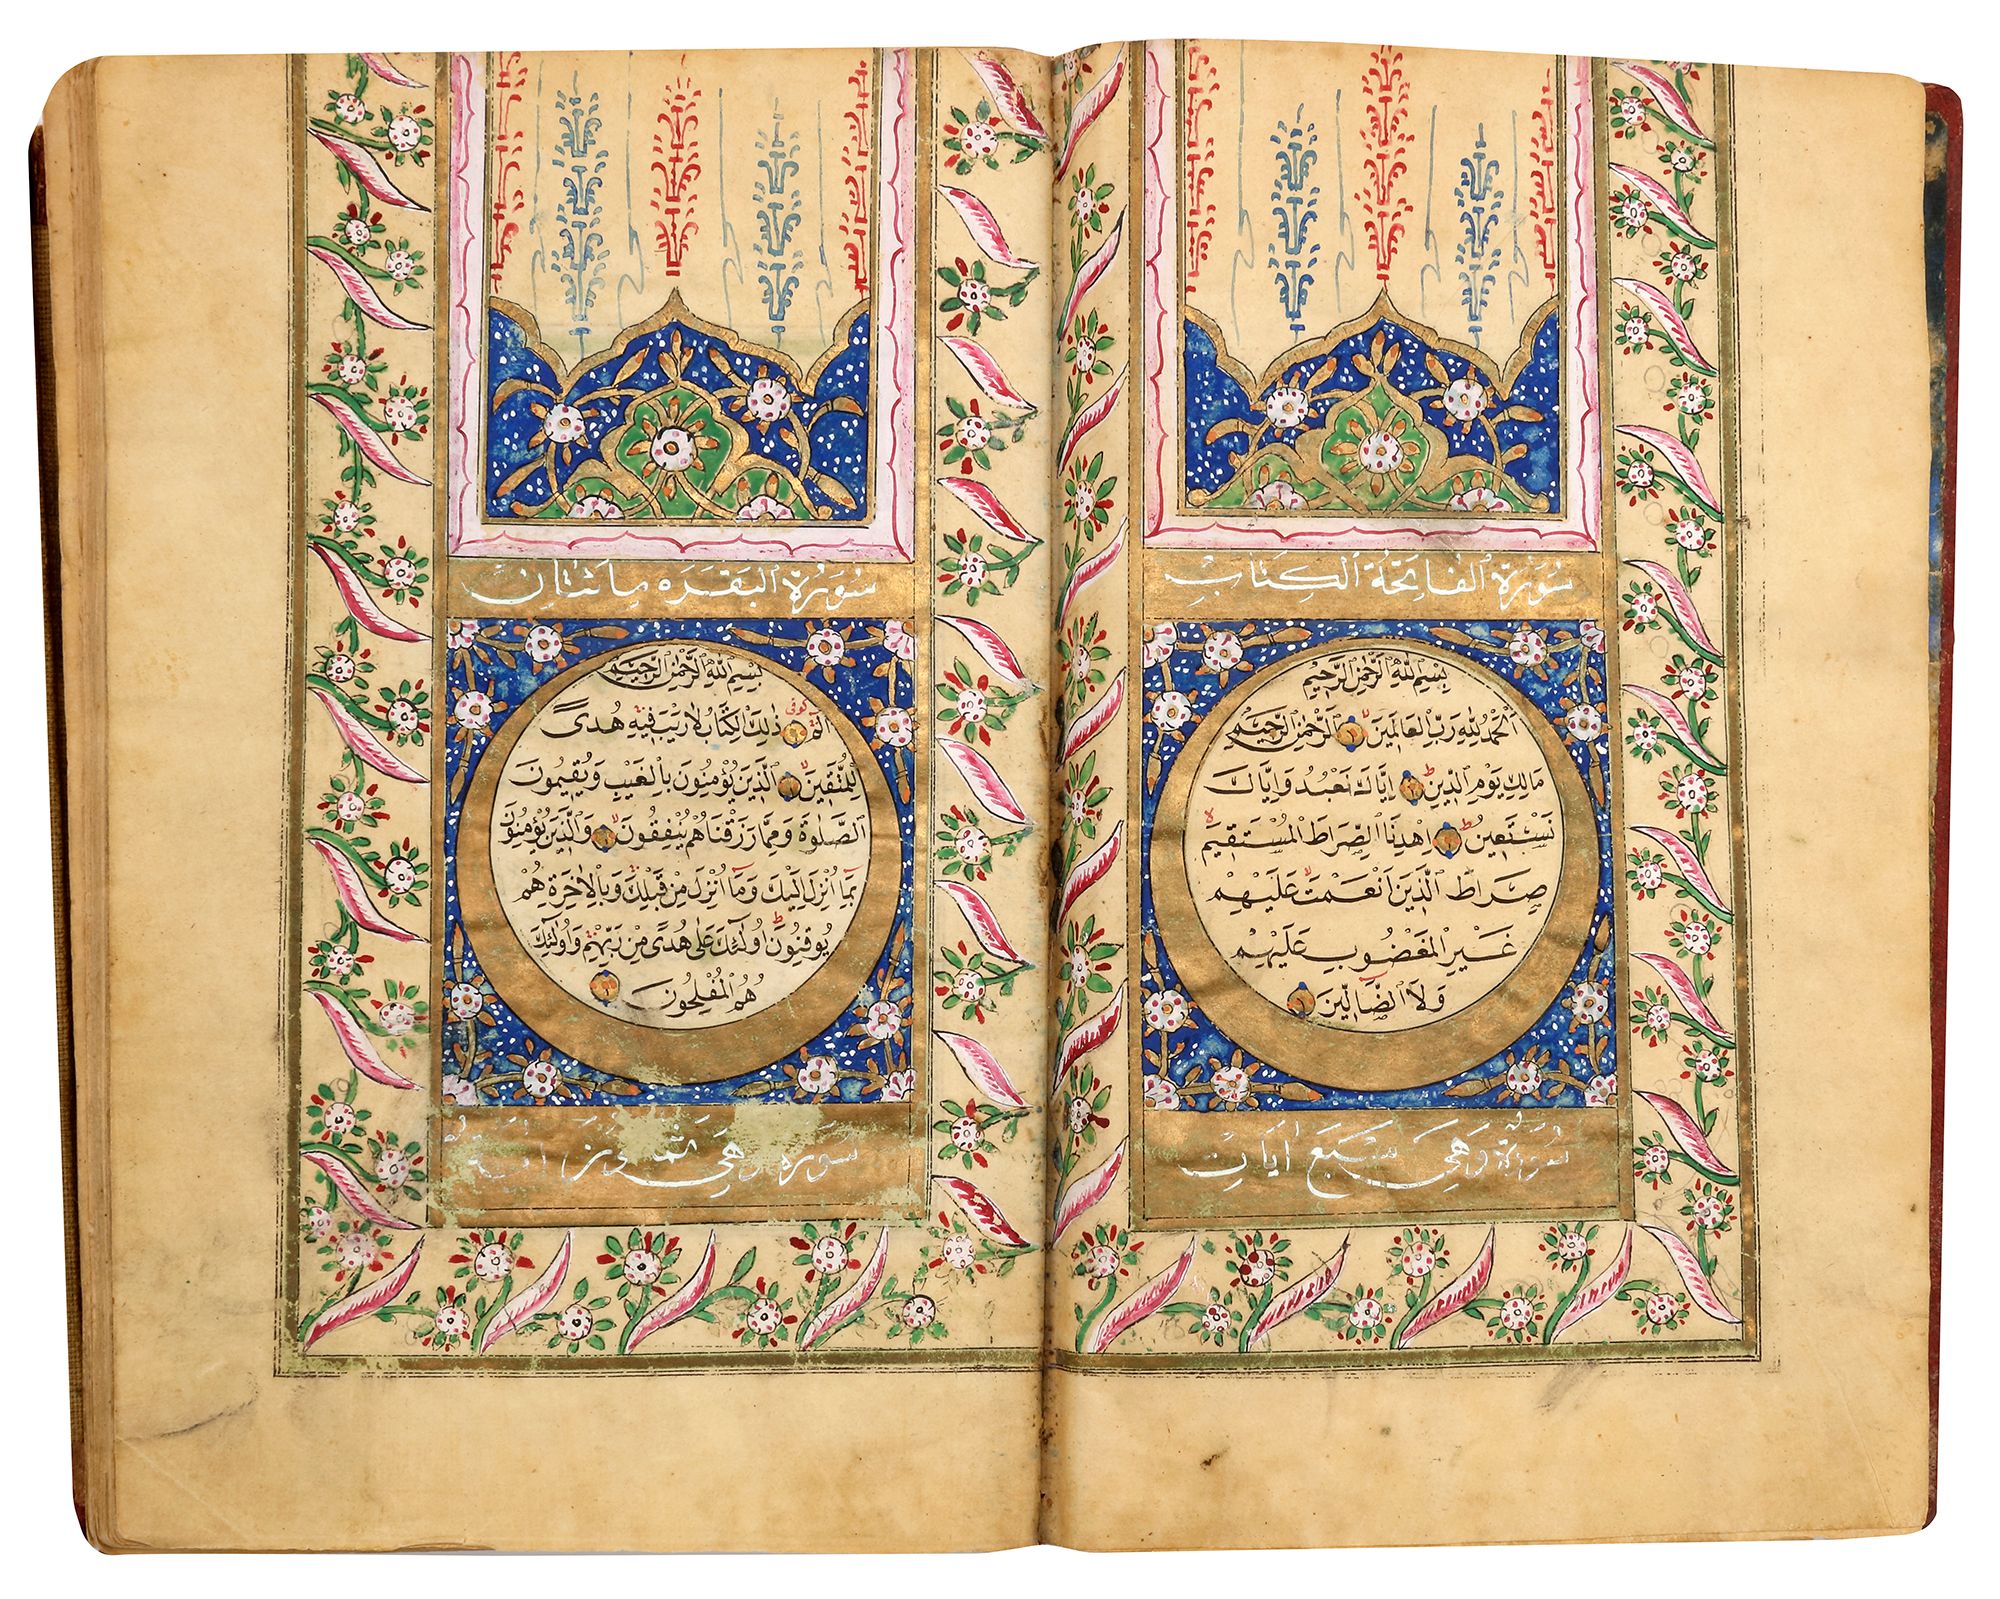 سُورَةُ الفَاتِحَةِ الكِتَابِ
بِسْمِ اللّٰهِ الرَّحْمٰنِ الرَّحِيمِ
اَلْحَمْدُ لِلّٰهِ رَبِّ العَالَمِينَ الرَّحْمٰنِ الرَّحِيمِ
مَالِكِ يَوْمِ الدِّينِ اِيَّاكَ نَعْبُدُ وَاِيَّاكَ
نَسْتَعِينُ اِهْدِنَا الصِّرَاطَ المُسْتَقِيمَ
صِرَاطَ الَّذِينَ اَنْعَمْتَ عَلَيْهِمْ
غَيْرِ المَغْضُوبِ عَلَيْهِمْ
وَلَا الضَّالِّينَ
سُورَةٌ وَهِيَ سَبَعُ اٰيَاتٍ
سُورَةُ البَقَرَه مِائَتَانِ
بِسْمِ اللّٰهِ الرَّحْمٰنِ الرَّحِيمِ
الٓمٓ كوفى ذٰلِكَ الكِتَابُ لَا رَيْبَ فِيهِ هُدًى
لِلْمُتَّقِينَ الَّذِينَ يُؤْمِنُونَ بِالْغَيْبِ وَيُقِيمُونَ
الصَّلٰوةَ وَمِمَّا رَزَقْنَاهُمْ يُنْفِقُونَ وَالَّذِينَ يُؤْمِنُونَ
بِمَا اُنْزِلَ اِلَيْكَ وَمَا اُنْزِلَ مِنْ قَبْلِكَ وَبِالْاٰخِرَةِ هُمْ
يُوقِنُونَ اُولٰئِكَ عَلٰى هُدًى مِنْ رَبِّهِمْ وَاُولٰئِكَ
هُمُ المُفْلِحُونَ
سُورَه وَهِيَ